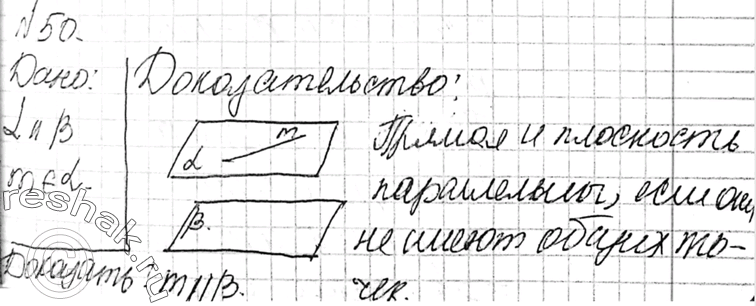 №50.
Дано:
α ∥ β
m ∈ α
Доказать: m ∥ β.
Доказательство:
α m
β.
Прямая и плоскость
параллельны, если они
не имеют общих то-
чек.
reshak.ru